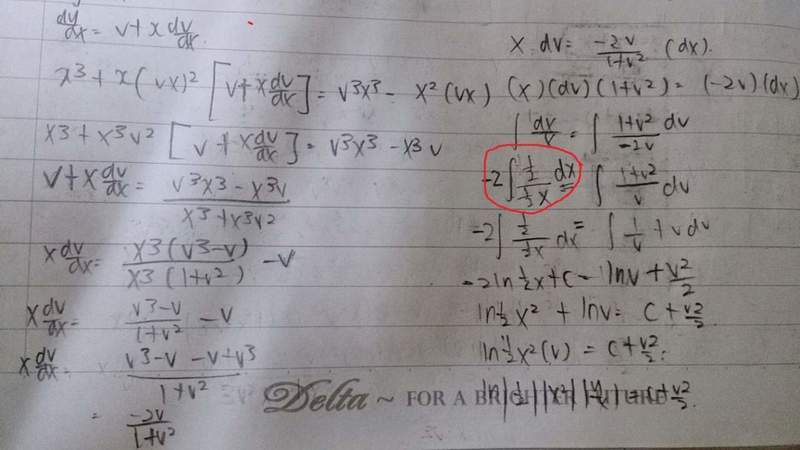 dy/dx = v + x dv/dx.
x³ + x(vx)² [v + x dv/dx] = v³x³ - x²(vx)
x³ + x³v² [v + x dv/dx] = v³x³ - x³v
v + x dv/dx = (v³x³ - x³v)/(x³ + x³v²)
x dv/dx = x³(v³-v)/x³(1+v²) - v
x dv/dx = (v³-v)/(1+v²) - v
x dv/dx = (v³-v-v+v³)/(1+v²)
= -2v/(1+v²)
x dv = -2v/(1+v²) (dx).
(x)(dv)(1+v²) = (-2v)(dx)
= ∫ (1+v²)/(-2v) dv
dx = ∫ (1+v²)/v dv
dx = ∫ 1/v + v dv
-2ln ½x + c = lnv + v²/2
ln ½x² + lnv = c + v²/2
x²(v) = c + v²/2.
Delta ~ FOR A